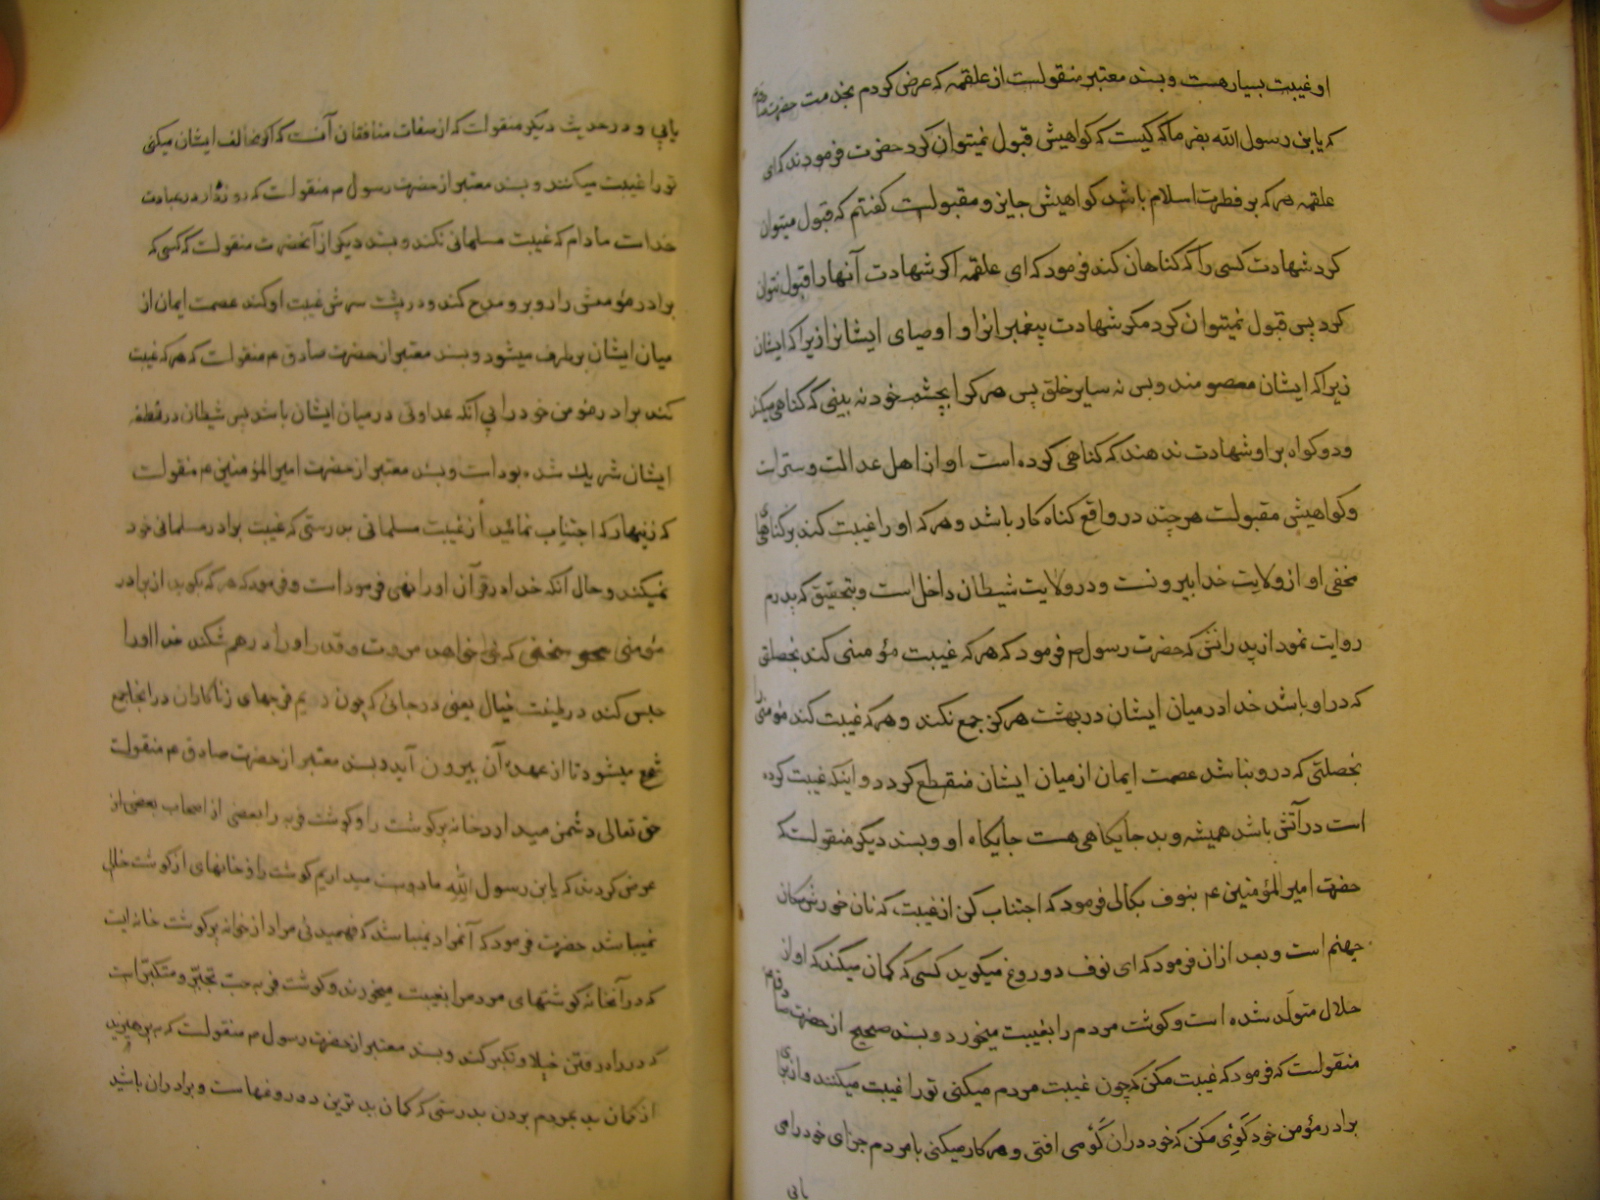 او غیبت بسیار هست و بسند معتبر منقولست از علقمه که عرض کردم بخدمت حضرت صادق
که یابن رسول الله بفرما که کیست که کواهیش قبول نمیتوان کرد حضرت فرمودند که ای
علقمه هر که بر فطرت اسلام باشد کواهیش جایز و مقبولست کفتم که قبول میتوان
کرد شهادت کسی را که کناهان کند فرمود که ای علقمه اکر شهادت آنها را قبول نتوان
کرد پس قبول نمیتوان کرد مکر شهادت پیغمبرانرا و اوصیای ایشانرا زیرا که ایشان
زیرا که ایشان معصومند و بس نه سایر خلق پس هر کرا بچشم خود نه بینی که کناهی میکند
و دو کواه بر او شهادت ندهند که کناهی کرده است او از اهل عدالت و ستر است
و کواهیش مقبولست هر چند در واقع کناه کار باشد و هر که او را غیبت کند بر کناهی
مخفی او از ولایت خدا بیرونست و در ولایت شیطان داخل است و بتحقیق که پدرم
روایت نمود از پدرانش که حضرت رسول م فرمود که هر که غیبت مؤمنی کند بخصلتی
که در او باشد خدا در میان ایشان در بهشت هرکز جمع نکند و هر که غیبت کند مؤمنی را
بخصلتی که در و نباشد عصمت ایمان از میان ایشان منقطع کردد و اینکه غیبت کرده
است در آتش باشد همیشه و بد جایکاهی هست جایکاه او و بسند دیکر منقولست که
حضرت امیرالمؤمنین عم بنوف بکالی فرمود که اجتناب کن از غیبت که نان خورش سکان
جهنم است و بعد ازان فرمود که ای نوف دروغ میکوید کسی که کمان میکند که او از
حلال متولد شده است و کوشت مردم را بغیبت میخورد و بسند صحیح از حضرت صادق م
منقولست که فرمود که غیبت مکن که چون غیبت مردم میکنی تو را غیبت میکنند و از برای
برادر مؤمن خود کَوی مکن که خود دران کَو می افتی و هر کار میکنی با مردم جزای خود را می
یابی
یابی و در حدیث دیکر منقولست که از صفات منافقان آنست که اکر مخالف ایشان میکنی
تو را غیبت میکنند و بسند معتبر از حضرت رسول م منقولست که روزه دار در عبادت
خداست مادام که غیبت مسلمانی نکند و بسند دیکر از آنحضرت منقولست که کسی که
برادر مؤمنش را روبرو مدح کند و در پشت سرش غیبت او کند عصمت ایمان از
میان ایشان برطرف میشود و بسند معتبر از حضرت صادق عم منقولست که هر که غیبت
کند برادر مؤمن خود را بی آنکه عداوتی در میان ایشان باشد پس شیطان در نطفه
ایشان شریک شده بود است و بسند معتبر از حضرت امیرالمؤمنین عم منقولست
که زینهار که اجتناب نمائید از غیبت مسلمانی بدرستی که غیبت برادر مسلمانی خود
نمیکند و حال انکه خدا در قرآن او را نهی فرموده است و فرمود که هر که بکوید از برادر
مؤمنی سخنی که خواهد مروت و قدر او را در هم شکند خدا او را
حبس کند در طینت خبال یعنی در جائی که چون ریم فرجهای زناکاران در انجا جمع
جمع میشود تا از عهده آن بیرون آید و بسند معتبر از حضرت صادق عم منقولست
حق تعالی دشمن میدارد خانه پر کوشت را و کوشت فربه را بعضی از اصحاب
عرض کردند که یابن رسول الله ما دوست میداریم کوشت را و خانهای از کوشت خالی
نمیباشد حضرت فرمود که آنمراد نمیباشد که فهمیدی مراد از خانه پر کوشت خانه ایست
که در آنخانه کوشتهای مردمرا بغیبت میخورند و کوشت فربه تجبر و متکبر است
که در راه رفتن خیلا و تکبر کند و بسند معتبر از حضرت رسول م منقولست که بپرهیزید
از کمان بد بمردم بردن بدرستی که کمان بد ترین دروغهاست و برادران باشید